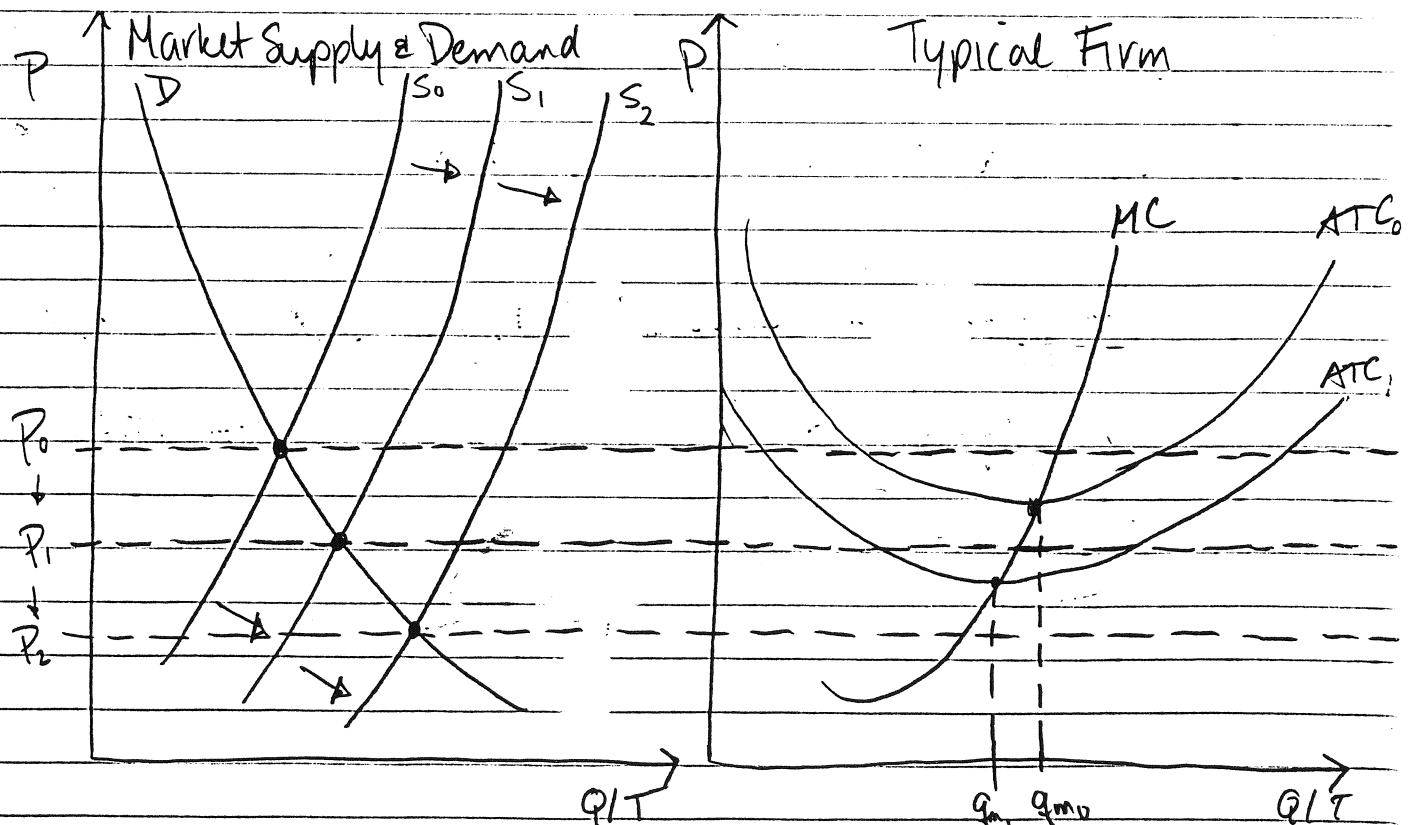 Market Supply & Demand
P
D
S0
S1
S2
P0
P1
P2
Q/T
Typical Firm
P
MC
ATC0
ATC1
qm1
qm0
Q/T